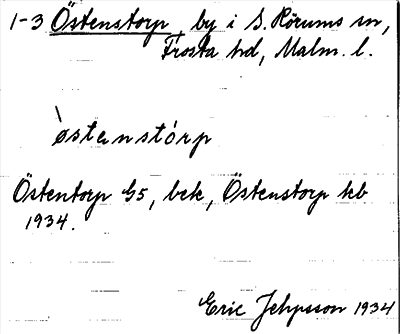 1-3 Östenstorp, by i S. Rörums sn,
Frosta hd, Malm. l.
òstenstórp
Östentorp G5, bek, Östenstorp kb
1934.
Eric Jehpsson 1934